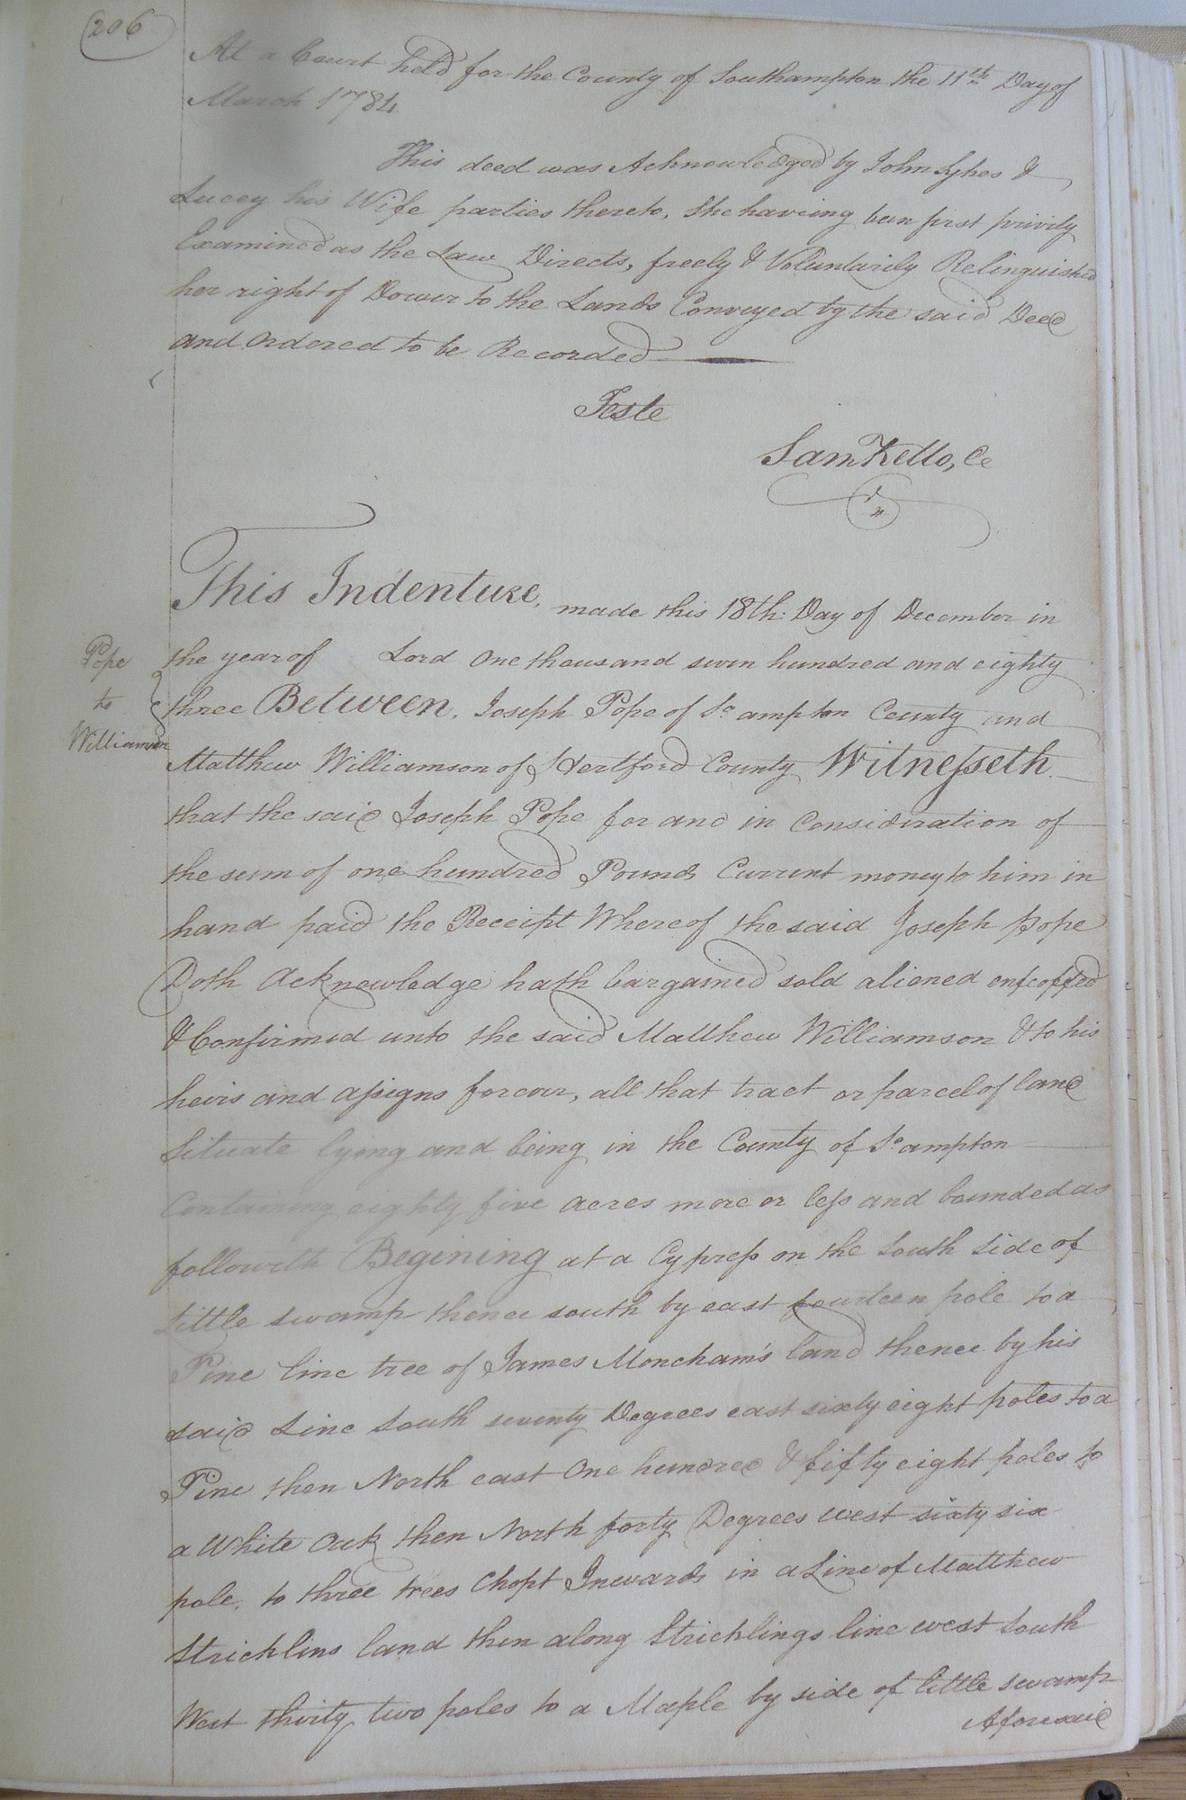 206
At a Court held for the County of Southampton the 11th Day of
March 1784.
This deed was Acknowledged by John Sykes &
Lucey his Wife parties thereto, she having been first privily
Examined as the Law Directs, freely & Voluntarily Relinguished
her right of Dower to the Lands Conveyed by the said Deed
and Ordered to be Recorded
Teste
Sam Kello, Cc
This Indenture, made this 18th: Day of December in
the year of Lord One thousand seven hundred and eighty
three Between, Joseph Pope of So ampton County and
Pope
to
Williamson
Matthew Williamson of Hertford County Witnesseth
that the said Joseph Pope for and in Consideration of
the sum of one hundred Pounds Current money to him in
hand paid the Receipt Whereof the said Joseph Pope
Doth Acknowledge hath bargained sold aliened enfeoffed
& Confirmed unto the said Matthew Williamson & to his
heirs and assigns forever, all that tract or parcel of land
Situate lying and being in the County of So ampton
Containing eighty five acres more or less and bounded as
followeth Begining at a Cypress on the South Side of
Little swamp thence south by east fourteen pole to a
Pine line tree of James Moncham's land thence by his
said Line South seventy Degrees east sixty eight poles to a
Pine then North east One hundred & fifty eight poles to
a White Oak then North forty Degrees west sixty six
pole, to three trees Chopt Inwards in a Line of Matthew
Stricklins land then along Stricklings line west South
West thirty two poles to a Maple by side of little swamp
Aforesaid